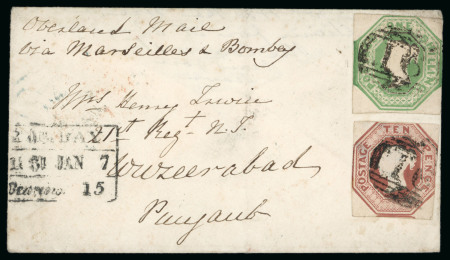 Overland Mail
via Marseilles & Bombay
ONE SHILLING
Mrs Henry Irwin
21st Regt N.I.
Wuzeerabad
Punjaub
JAN 7
Bearing 15
POSTAGE TEN PENCE